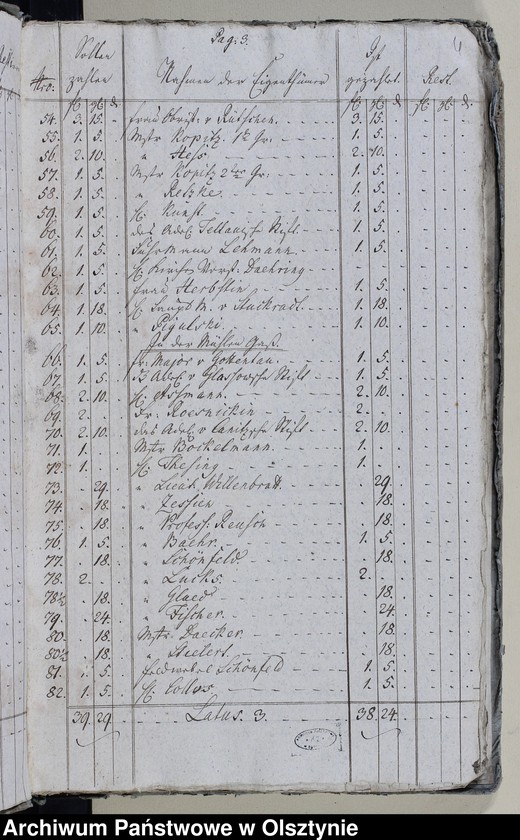 Pag: 3.
4
Sollen zahlen
Ist gezahlt.
Rest.
Nro:
Nahmen der Eigenthümer
54. 3. 15. Frau Obrist v Rütschen. 3. 15.
55. 1. 5. Mstr Kopitz 1te Gr: 1. 5.
56. 2. 10. " Hess 2. 10.
57. 1. 5. Mstr Kopitz 2ter Gr: 1. 5.
58. 1. 5. " Retzke 1. 5.
59. 1. 5. H. Kunst 1. 5.
60. 1. 5. das Adel. Stift 1. 5.
61. 1. 5. Fuhrmann Lehmann 1. 5.
62. 1. 5. H. Daehring
63. 1. 5. Frau Herbstin 1. 5.
64. 1. 18. H. Haupt M. v Stuckradt 1. 18.
65. 1. 10. " Pigulski 1. 10.
In der Mühlen Gaß.
66. 1. 5. Fr: Major v 1. 5.
67. 1. 5. Adel. v Glasowsche Stift 1. 5.
68. 2. 10. H. Assmann 2. 10.
69. 2. Fr: Roesnickin 2.
70. 2. 10. das Adel. v Canitzsche Stift 2. 10.
71. 1. Mstr Böckelmann 1.
72. 1. H. Thesing 1.
73. 29. " Lieut. Willenbrodt 29.
74. 18. " Zessien 18.
75. 18. " Profess. Reusch 18.
76. 1. 5. " Baehr 1. 5.
77. 18. " Schönfeld 18.
78. 2. " Lucks 2.
78½ 18. " Glaed 18.
79. 24. " Fischer 24.
80. 18. Mstr Daecker 18.
80½ 18. " 18.
81. 5. Feldwebel Schönfeld 1. 5.
82. 1. 5. H. Collos 1. 5.
39. 29. Latus. 3. 38. 24.
Archiwum Państwowe w Olsztynie